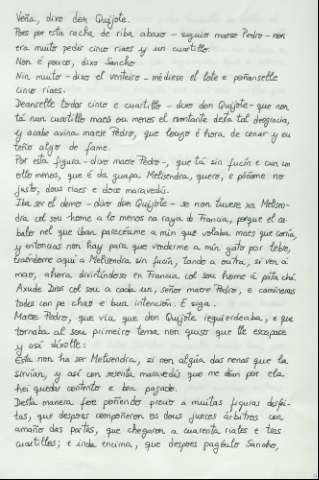 Veña, dixo don Quijote.
Pois por esta racha de riba abaxo - seguiu maese Pedro - non
era muito pedir cinco riaes y un cuartillo.
Non é pouco, dixo Sancho
Nin muito - dixo el venteiro - médiese el lote e póñanselle
cinco riaes.
Deanselle todos cinco e cuartillo - dixo don Quijote - que non
tá nun cuartillo maes ou menos el montante desta tal desgracia,
y acabe axina maese Pedro, que lougo é hora de cenar y eu
teño algo de fame.
Por esta figura - dixo maese Pedro -, que tá sin fucín e cun un
ollo menos, que é da guapa Melisendra, quero, e póñome no
justo, dous riaes e doce maravedís.
Iba ser el demo - dixo don Quijote - se non tuvese xa Melisen-
dra col sou home a lo menos na raya da Francia, porque el ca-
balo nel que iban pareceume a min que volaba maes que corría,
y entoncias non hay para que venderme a min gato por lebre,
traéndome aquí a Melisendra sin fucín, tando a outra, si ven á
mao, ahora divirtíndose en Francia col sou home á pata chá.
Axude Dios col sou a cada un, señor maese Pedro, e camiñemos
todos con pe chao e bua intención. E siga.
Maese Pedro, que vía que don Quijote izquierdeaba, e que
tornaba al sou primeiro tema, non quiso que lle escapase
y así díxolle:
Esta non ha ser Melisendra, si non algúa das nenas que la
sirvían, y así con sesenta maravedís que me dean por ela
hei quedar contento e ben pagado.
Desta manera foi poñendo precio a muitas figuras desfei-
tas, que despois compoñeron os dous jueces árbitros con
amaño das partes, que chegaron a cuarenta riales e tres
cuartillos; e inda encima, que despois pagóulo Sancho,